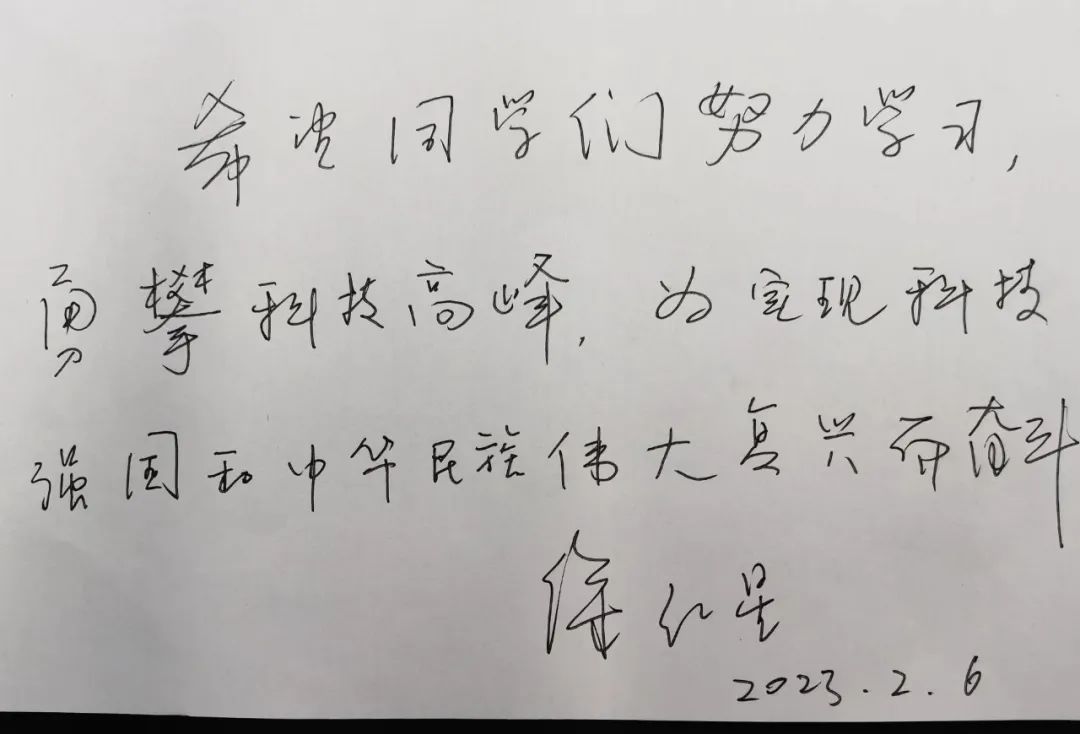 希望同学们努力学习,
勇攀科技高峰,为实现科技
强国和中华民族伟大复兴而奋斗
徐红星
2023.2.6